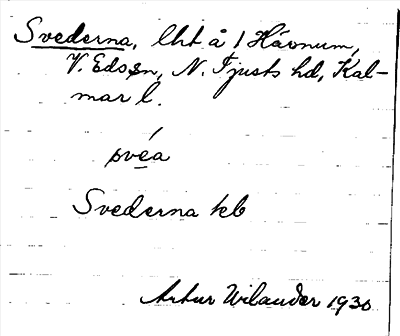 Svederna, lht å 1 Hävnum,
V. Eds sn, N. Tjusts hd, Kal-
mar l.
svéa
Svederna kb
Artur Wilander 1930